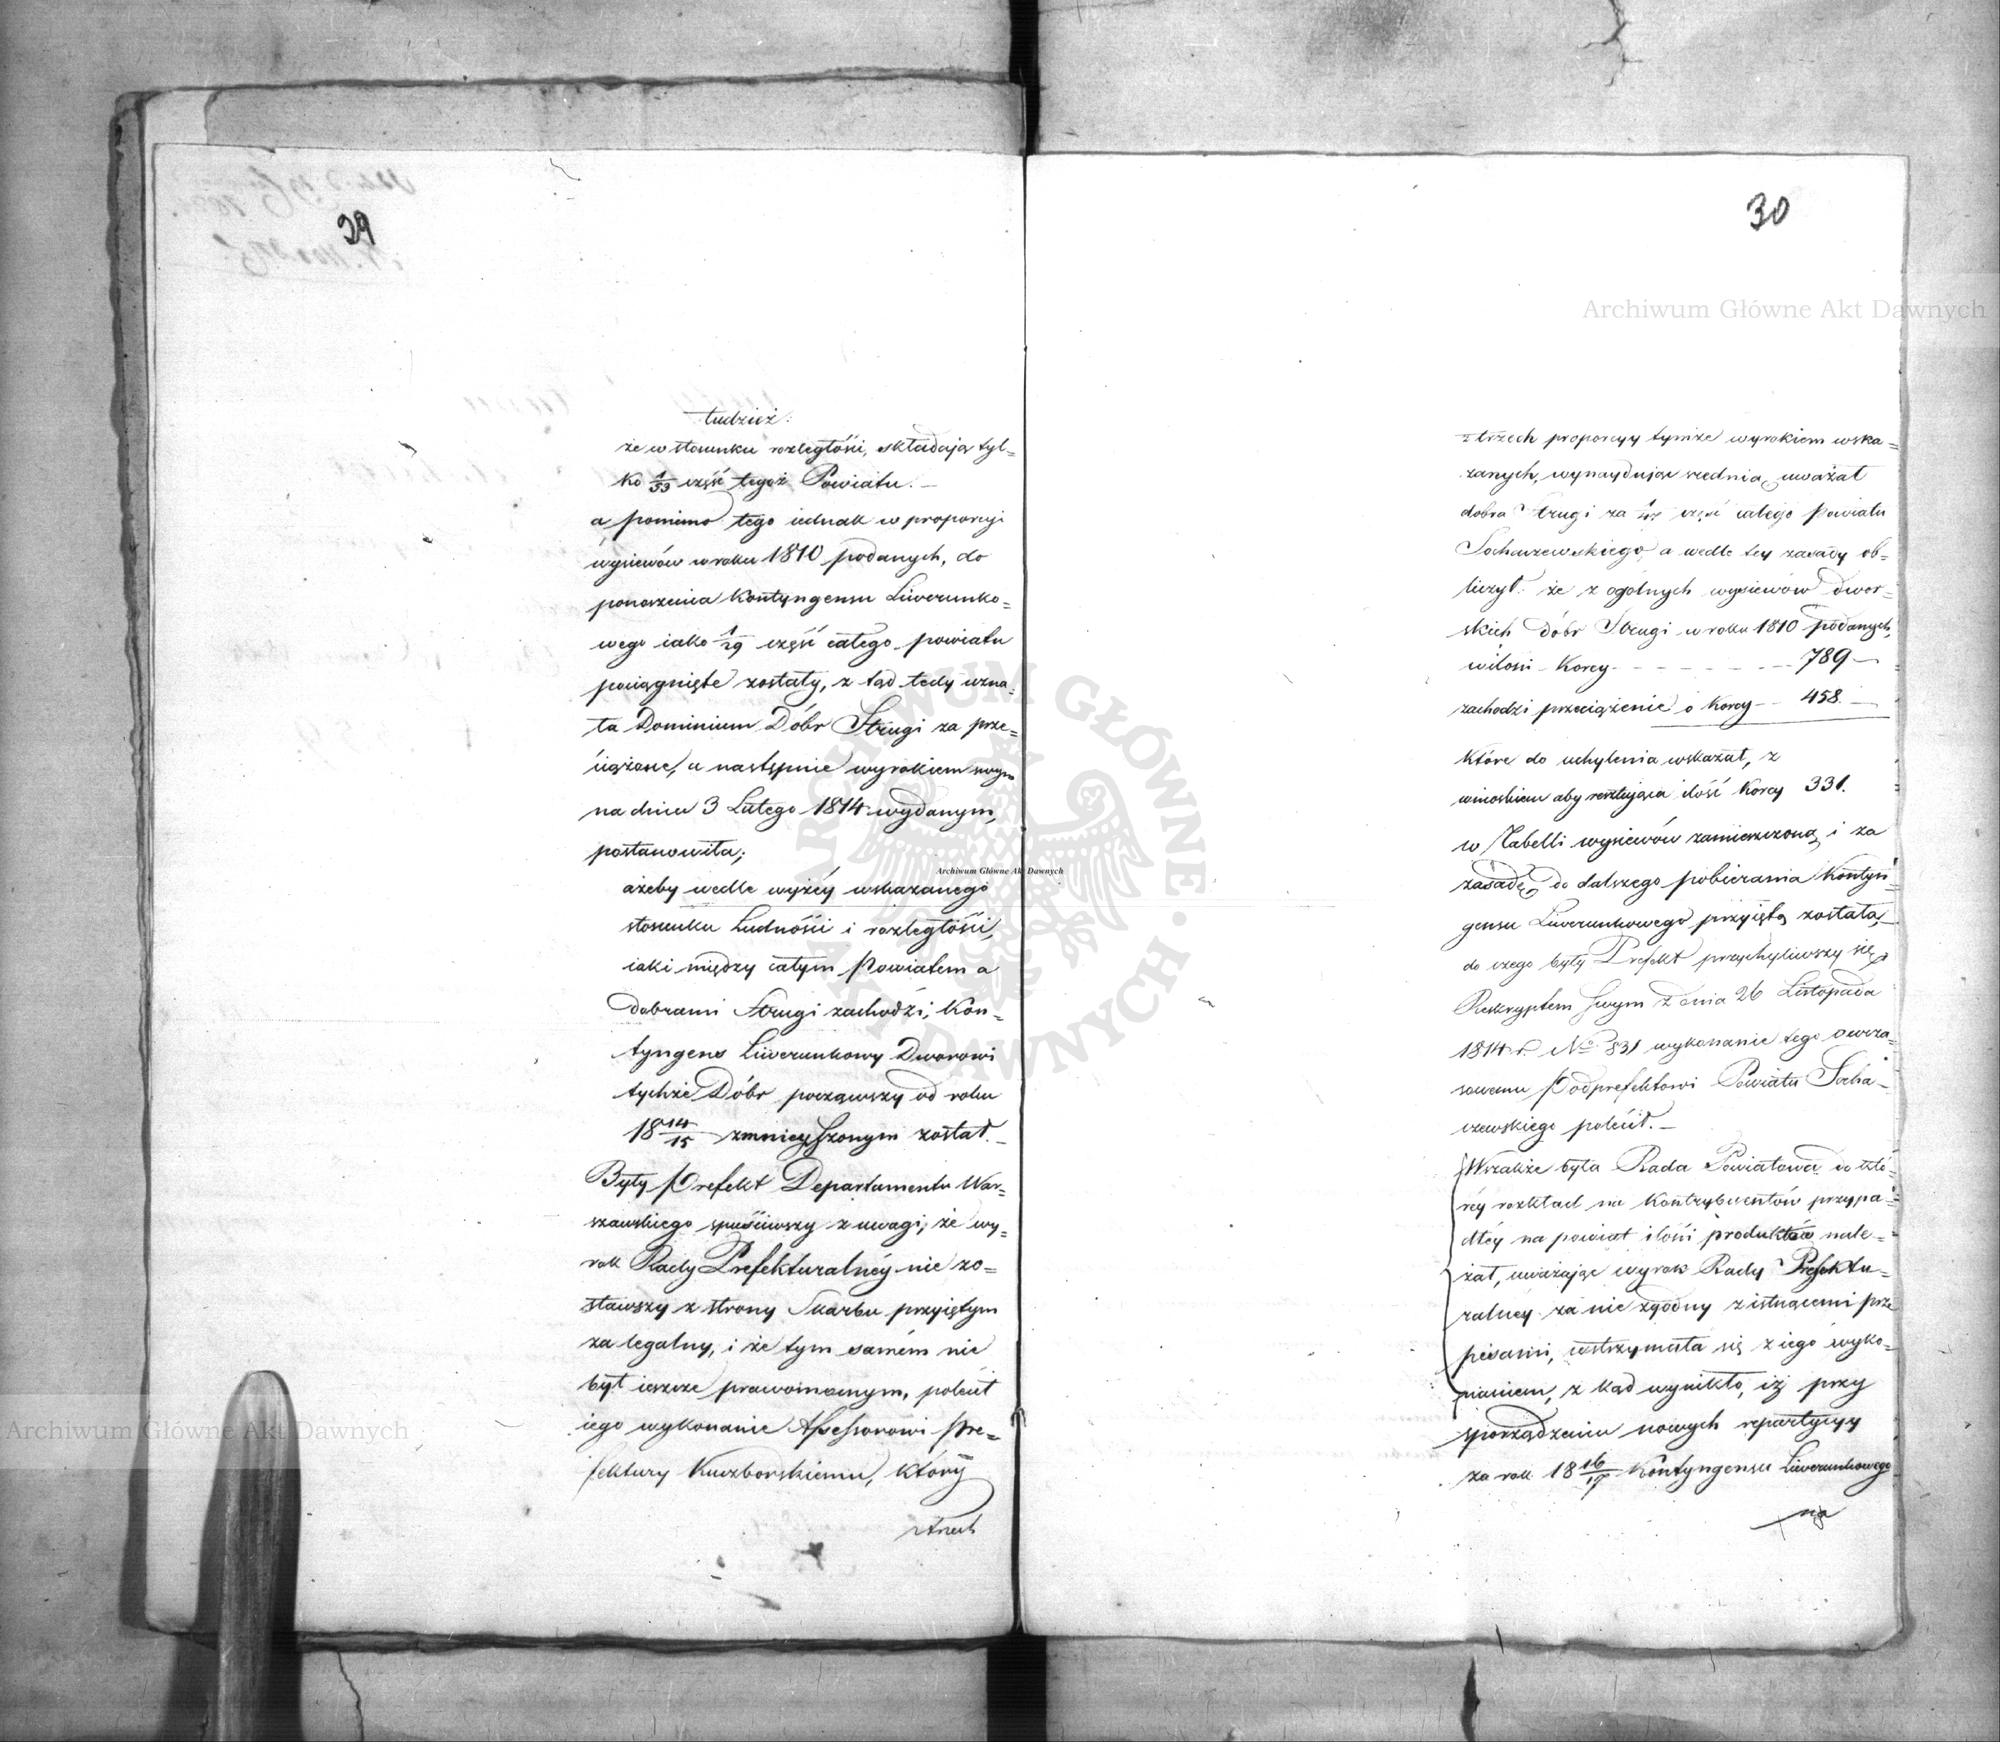 29
tudzież:
że w stosunku rozległości, składają tyl=
ko 1/53 część tegoż Powiatu.—
a pomimo tego iednak w proporcyi
wysiewów w roku 1810 podanych, do
ponoszenia Kontyngensu Liwerunko=
wego iako 1/29 część całego powiatu
pociągnięte zostały, z tąd tedy uzna=
ła Dominium Dóbr Strugi za prze=
ciążone, a następnie wyrokiem swym
na dniu 3 Lutego 1814 wydanym,
postanowiła;
ażeby wedle wyżéy wskazanego
stosunku Ludności i rozległości,
iaki między całym Powiatem a
Dobrami Strugi zachodzi, Kon=
tyngens Liwerunkowy Dworowi
tychże Dóbr począwszy od roku
18 14/15 zmnieyszonym został.—
Były Prefekt Departamentu War=
szawskiego spuściwszy z uwagi, że wy=
rok Rady Prefekturalnéy nie zo=
stawszy z strony Skarbu przyiętym
za legalny, i że tym samém nie
był ieszcze prawomocnym, polecił
iego wykonanie Assessorowi Pre=
fektury Kuczborskiemu, który
z trzech
30
z trzech proporcyy tymże wyrokiem wska=
zanych, wynayduiąc srednią, uważał
dobra Strugi za część całego Powiatu
Sochaczewskiego, a wedle tey zasady ob=
liczył: że z ogolnych wysiewów dwor=
skich dóbr Strugi w roku 1810 podanych,
w ilosci Korcy - - - - - - - 789 —
zachodzi przeciążenie o Korcy - - 458. —
które do uchylenia wskazał, z
wnioskiem aby resztuiąca ilość Korcy 331.
w Tabelli wysiewów zamieszczoną i za
zasadę do dalszego pobierania Kontyn=
gensu Liwerunkowego przyiętą została,—
do czego były Prefekt przychyliwszy się,
Reskryptem swym z dnia 26 Listopada
1814 r. No 831 wykonanie tego owcza=
sowemu Podprefektowi Powiatu Socha=
czewskiego polecił.—
Wszakże była Rada Powiatowa do któ=
réy rozkład na Kontrybuentów przypa=
dłéy na powiat ilości produktów nale=
żał, uważając wyrok Rady Prefektu=
ralnéy za nie zgodny z istnącemi prze
pisami, wstrzymała się z iego wyko=
naniem, z kąd wynikło, iż przy
sporządzeniu nowych repartycyy
za rok 18 16/17 Kontyngensu Liwerunkowego
na
Archiwum Główne Akt Dawnych
Archiwum Główne Akt Dawnych
Archiwum Główne Akt Dawnych
ARCHIWUM GŁÓWNE · AKT DAWNYCH ·